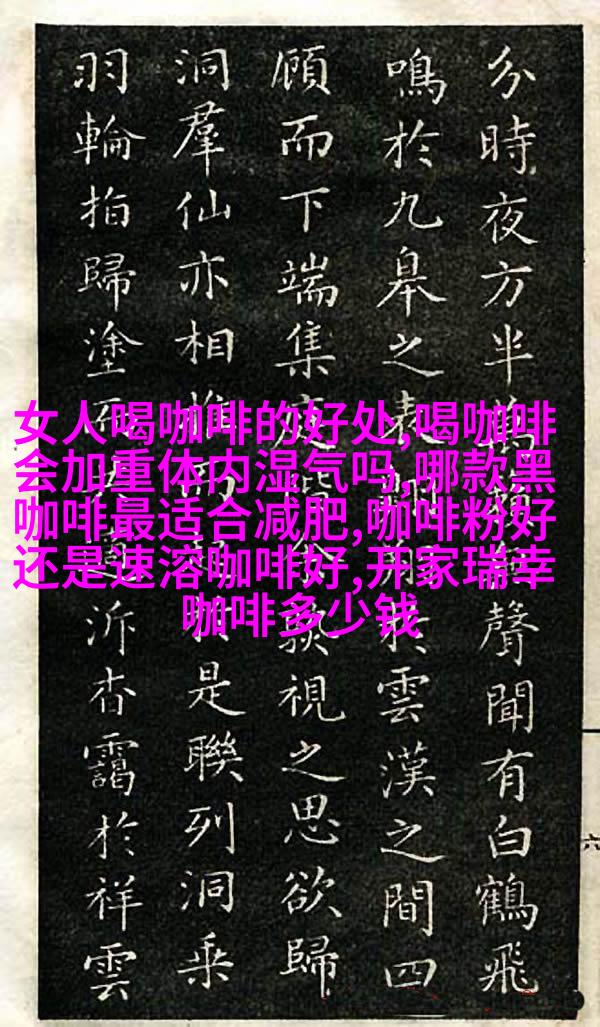 女人喝咖啡的好处,喝咖啡
会加重体内湿气吗,哪款黑
咖啡最适合减肥,咖啡粉好
还是速溶咖啡好,开家瑞幸
咖啡多少钱
分時夜方半萬聲聞有白鶴飛
鳴於九皋之表於雲漢之間四
顧而下端集視之思欲歸
洞羣仙亦相是聯列洞乘
羽輪拍歸塗泝杳靄於祥雲
六